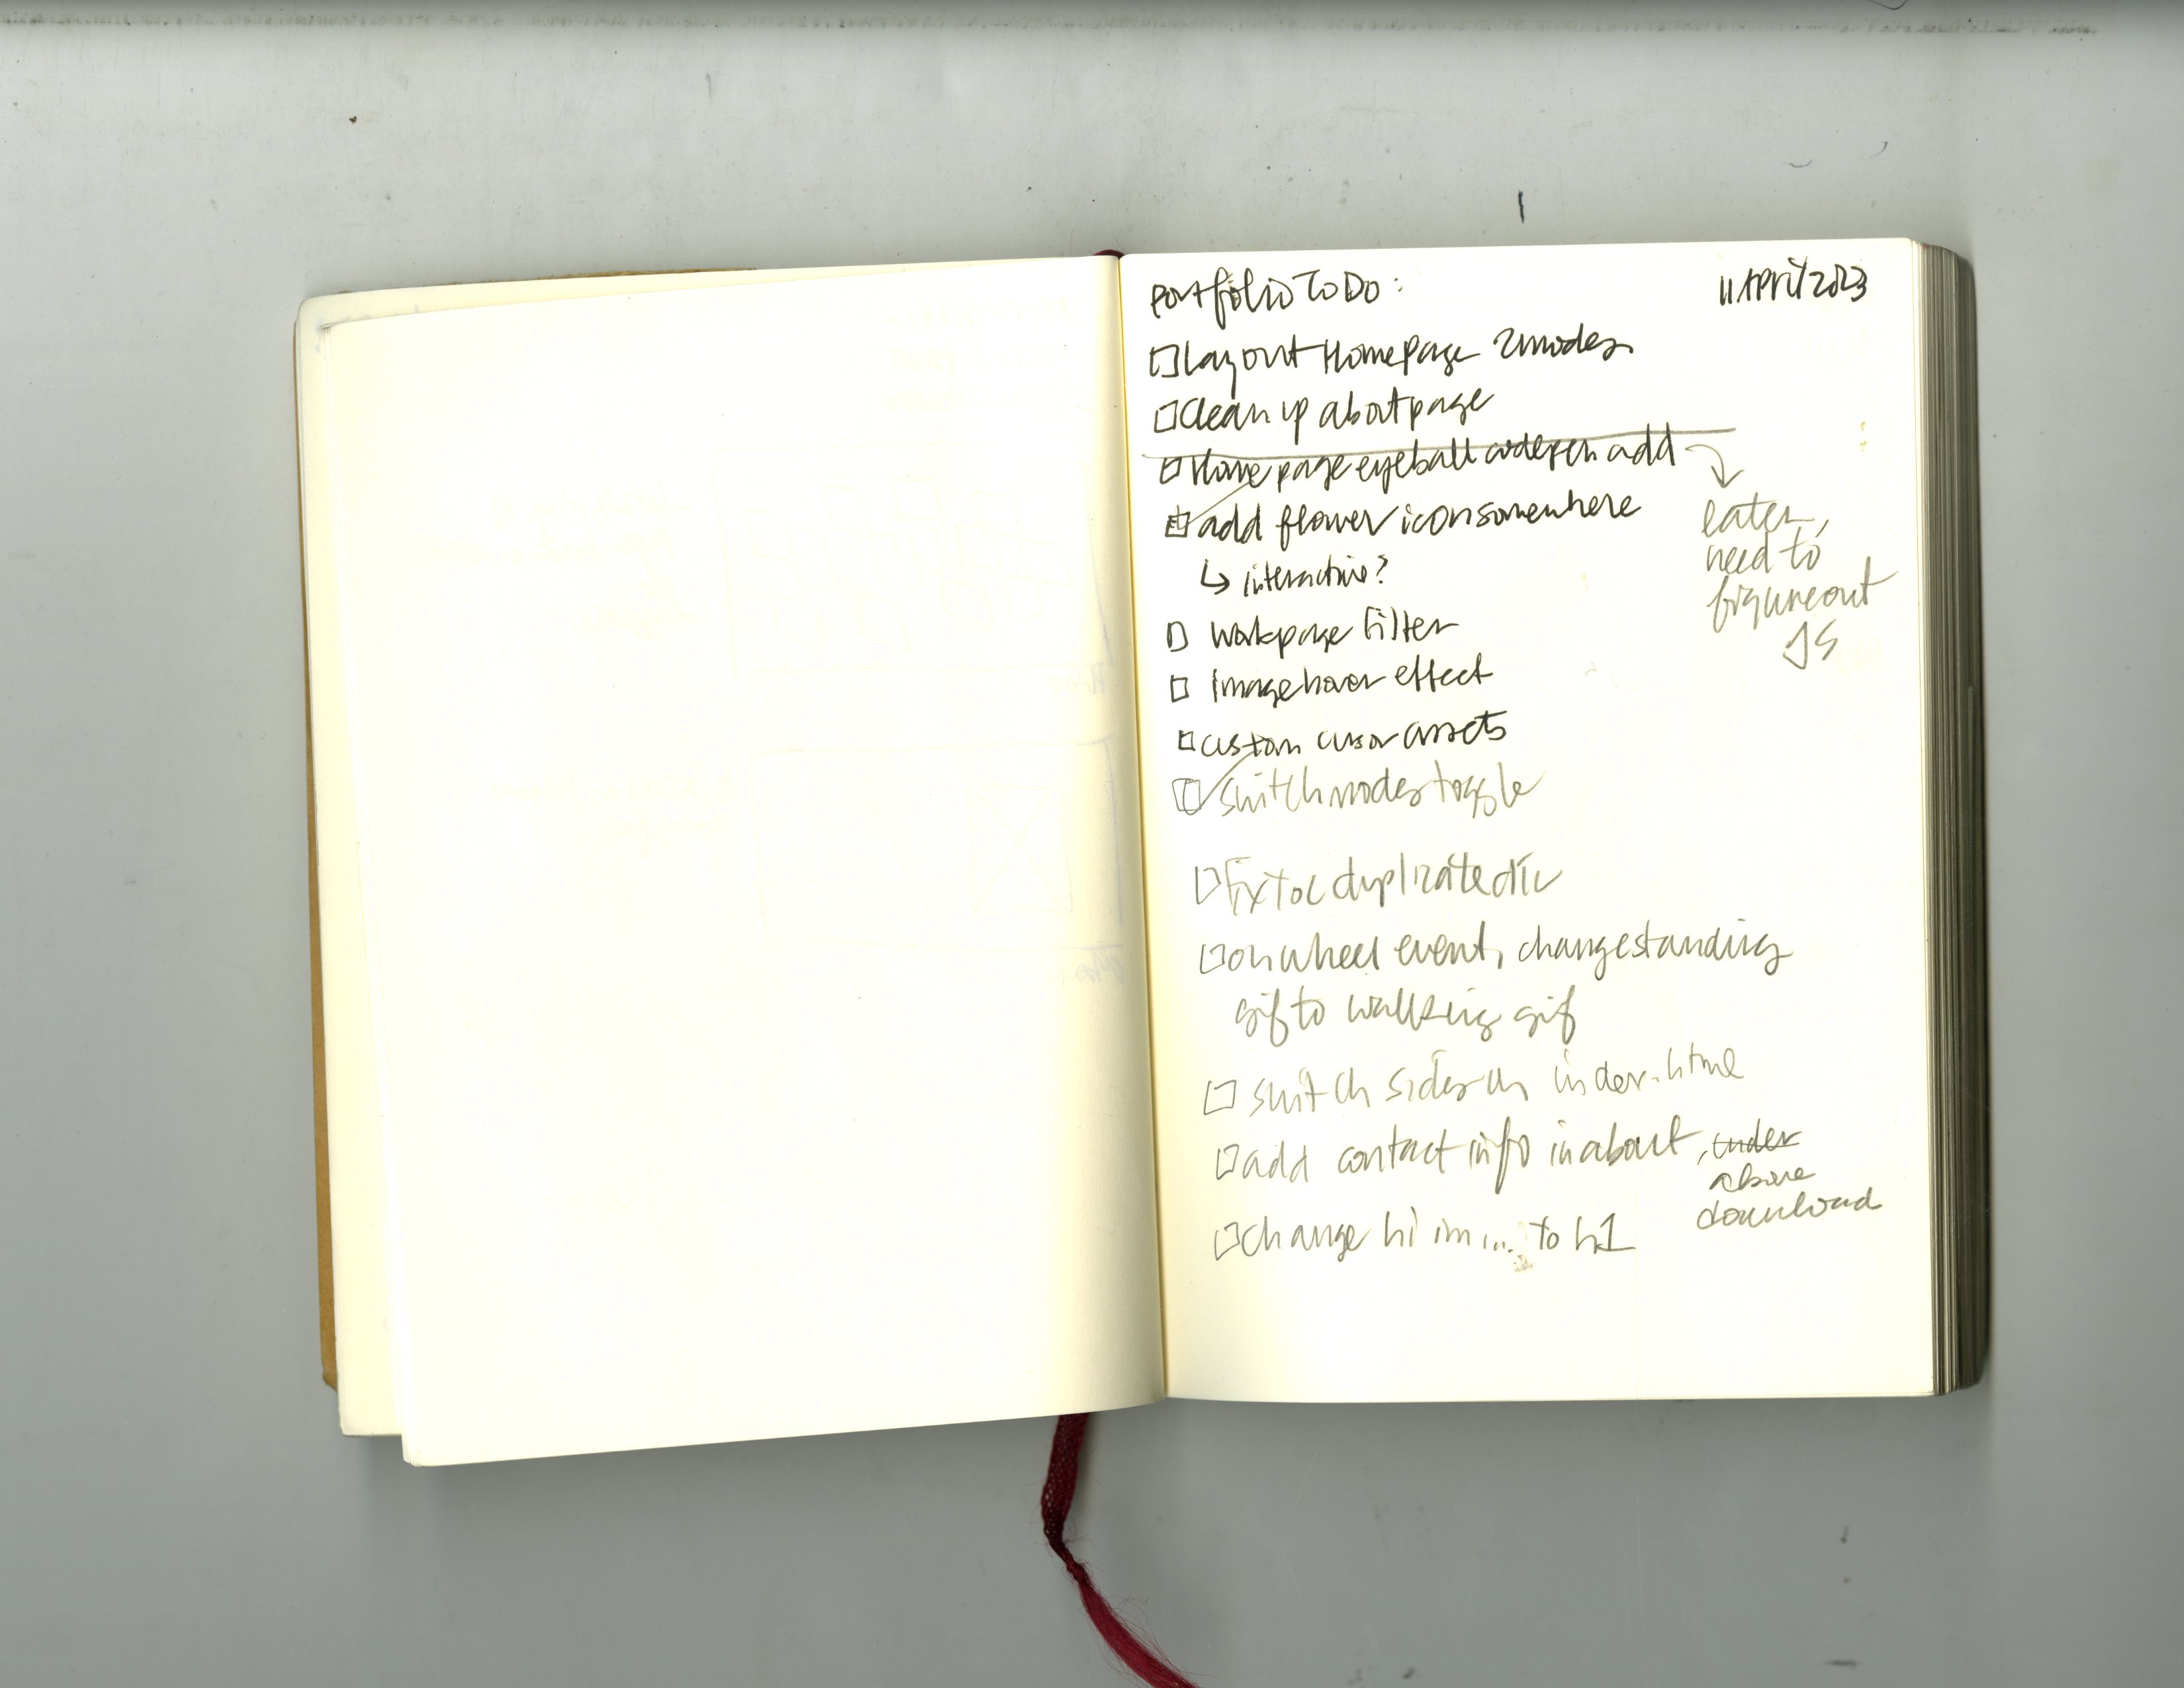 portfolio To Do:
11 April 2023
□ Layout Homepage 2 modes
□ Clean up about page
□ Home page eyeball codepen add
later,
need to
figure out
JS
□ add flower icon somewhere
↳ interactive?
□ Work page filter
□ Image hover effect
□ custom cursor assets
□ switch modes toggle
□ Fix toc duplicate div
□ on wheel event, change standing
gif to walking gif
□ switch sides in index.html
□ add contact info in about, under
above
download
□ change hi im ... to h1